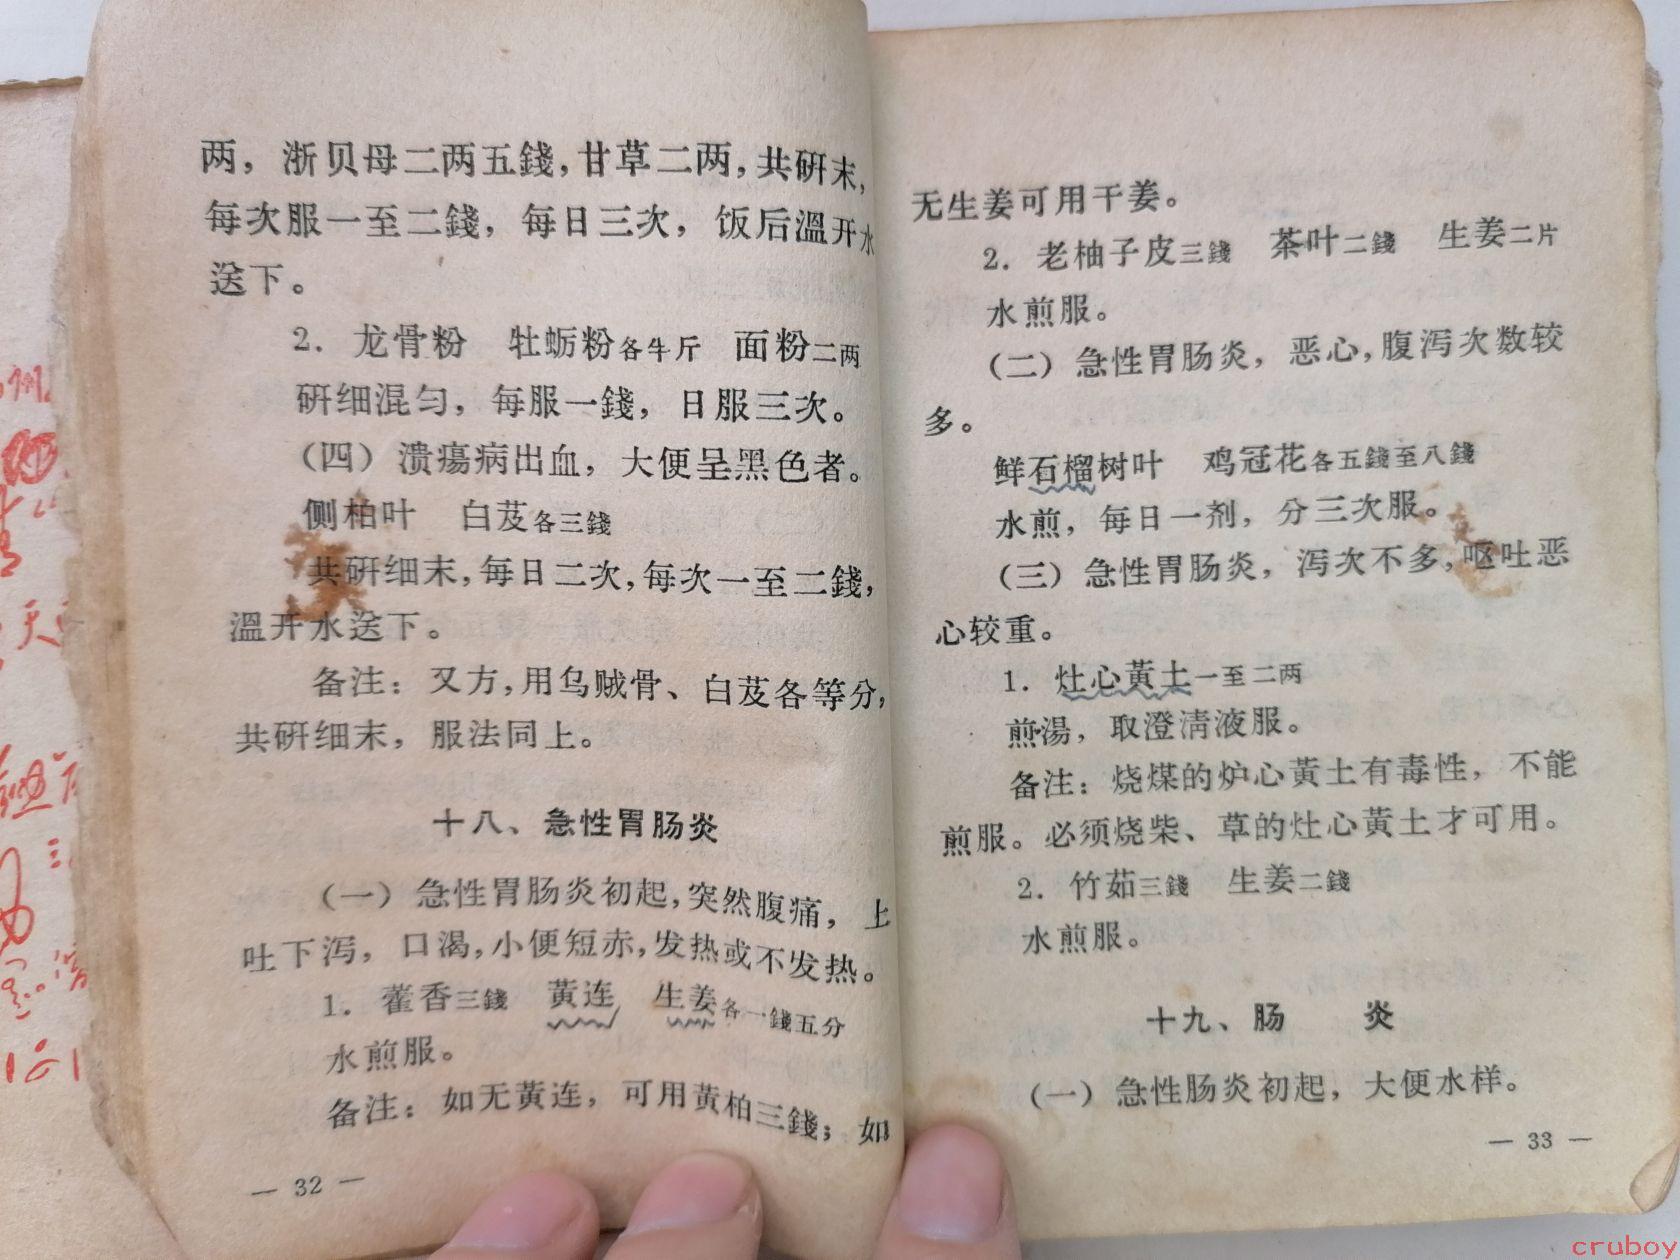 两，浙贝母二两五錢，甘草二两，共研末，
每次服一至二錢，每日三次，饭后溫开水
送下。
2．龙骨粉　牡蛎粉各半斤　面粉二两
研细混匀，每服一錢，日服三次。
（四）溃瘍病出血，大便呈黑色者。
侧柏叶　白芨各三錢
共研细末，每日二次，每次一至二錢，
溫开水送下。
备注：又方，用乌贼骨、白芨各等分，
共研细末，服法同上。
十八、急性胃肠炎
（一）急性胃肠炎初起，突然腹痛，上
吐下泻，口渴，小便短赤，发热或不发热。
1．藿香三錢　黄连　生姜各一錢五分
水煎服。
备注：如无黄连，可用黄柏三錢；如
— 32 —
无生姜可用干姜。
2．老柚子皮三錢　茶叶二錢　生姜二片
水煎服。
（二）急性胃肠炎，恶心，腹泻次数较
多。
鲜石榴树叶　鸡冠花各五錢至八錢
水煎，每日一剂，分三次服。
（三）急性胃肠炎，泻次不多，呕吐恶
心较重。
1．灶心黄土一至二两
煎湯，取澄清液服。
备注：烧煤的炉心黄土有毒性，不能
煎服。必须烧柴、草的灶心黄土才可用。
2．竹茹三錢　生姜二錢
水煎服。
十九、肠　　炎
（一）急性肠炎初起，大便水样。
— 33 —
cruboy